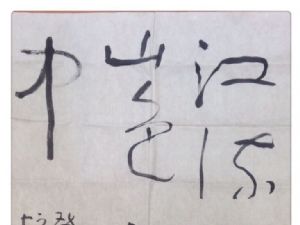 江流
山色
中